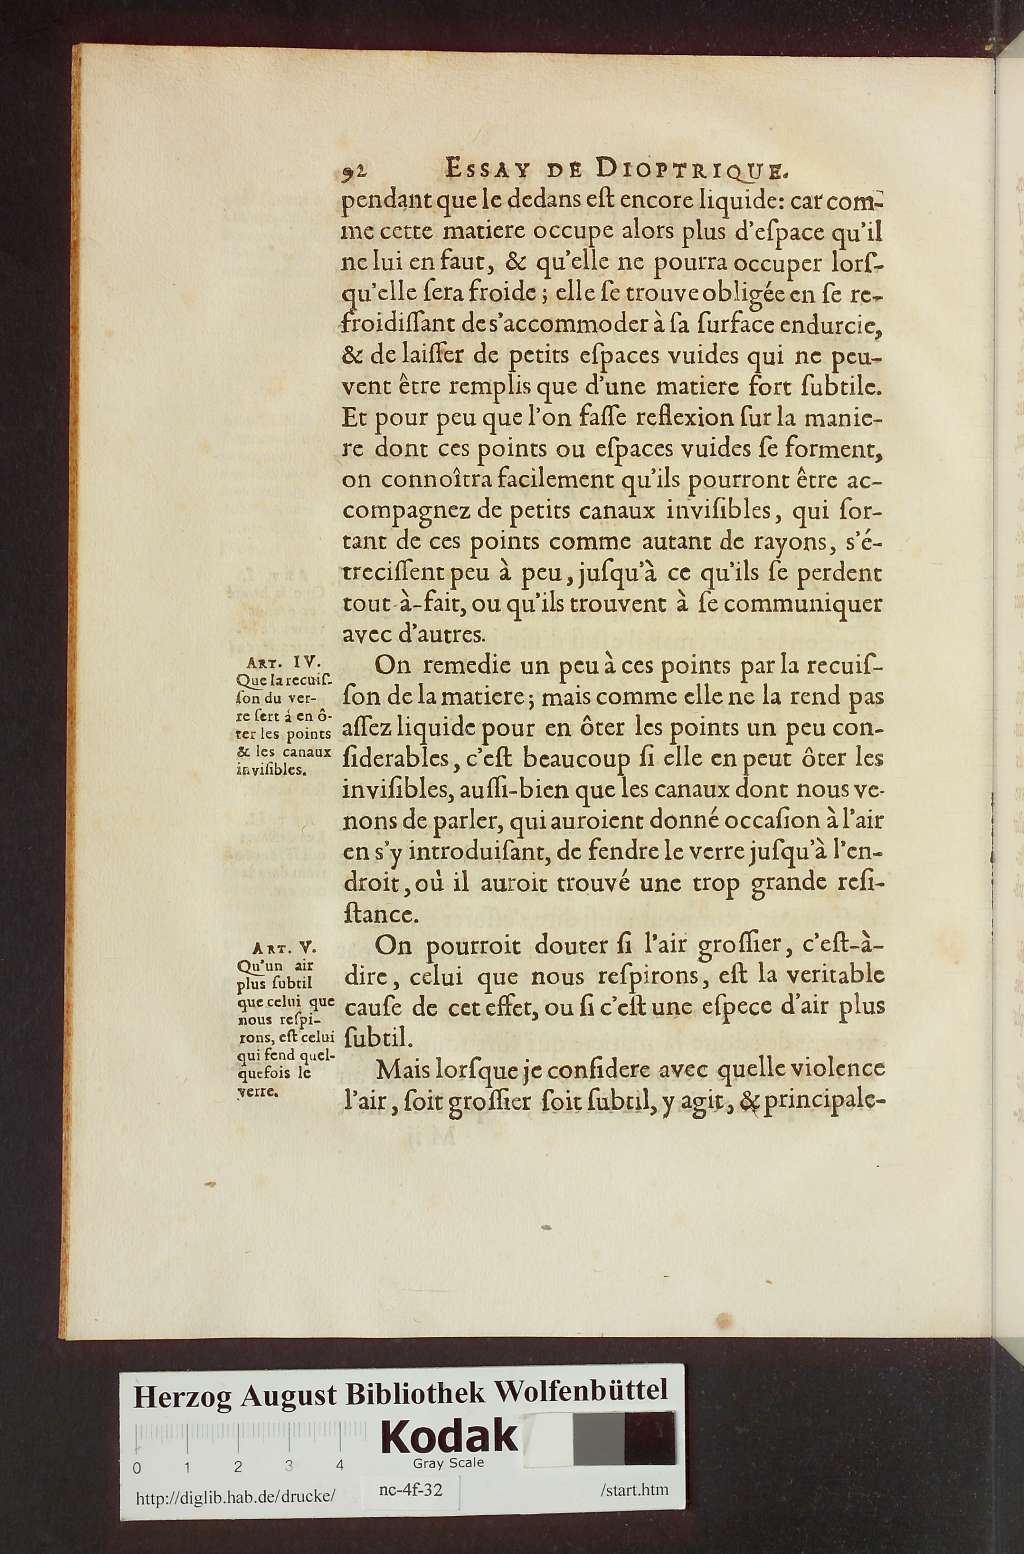 92 ESSAY DE DIOPTRIQUE.
pendant que le dedans eſt encore liquide: car com-
me cette matiere occupe alors plus d'eſpace qu'il
ne lui en faut, & qu'elle ne pourra occuper lorſ-
qu'elle ſera froide; elle ſe trouve obligée en ſe re-
froidiſſant de s'accommoder à ſa ſurface endurcie,
& de laiſſer de petits eſpaces vuides qui ne peu-
vent être remplis que d'une matiere fort ſubtile.
Et pour peu que l'on faſſe reflexion ſur la manie-
re dont ces points ou eſpaces vuides ſe forment,
on connoîtra facilement qu'ils pourront être ac-
compagnez de petits canaux inviſibles, qui ſor-
tant de ces points comme autant de rayons, s'é-
treciſſent peu à peu, juſqu'à ce qu'ils ſe perdent
tout-à-fait, ou qu'ils trouvent à ſe communiquer
avec d'autres.
ART. IV.
Que la recuiſ-
ſon du ver-
re ſert à en ô-
ter les points
& les canaux
inviſibles.
On remedie un peu à ces points par la recuiſ-
ſon de la matiere; mais comme elle ne la rend pas
aſſez liquide pour en ôter les points un peu con-
ſiderables, c'eſt beaucoup ſi elle en peut ôter les
inviſibles, auſſi-bien que les canaux dont nous ve-
nons de parler, qui auroient donné occaſion à l'air
en s'y introduiſant, de fendre le verre juſqu'à l'en-
droit, où il auroit trouvé une trop grande reſi-
ſtance.
ART. V.
Qu'un air
plus ſubtil
que celui que
nous reſpi-
rons, eſt celui
qui fend quel-
quefois le
verre.
On pourroit douter ſi l'air groſſier, c'eſt-à-
dire, celui que nous reſpirons, eſt la veritable
cauſe de cet effet, ou ſi c'eſt une eſpece d'air plus
ſubtil.
Mais lorſque je conſidere avec quelle violence
l'air, ſoit groſſier ſoit ſubtil, y agit, & principale-
Herzog August Bibliothek Wolfenbüttel
Kodak
Gray Scale
0 1 2 3 4
http://diglib.hab.de/drucke/ nc-4f-32 /start.htm